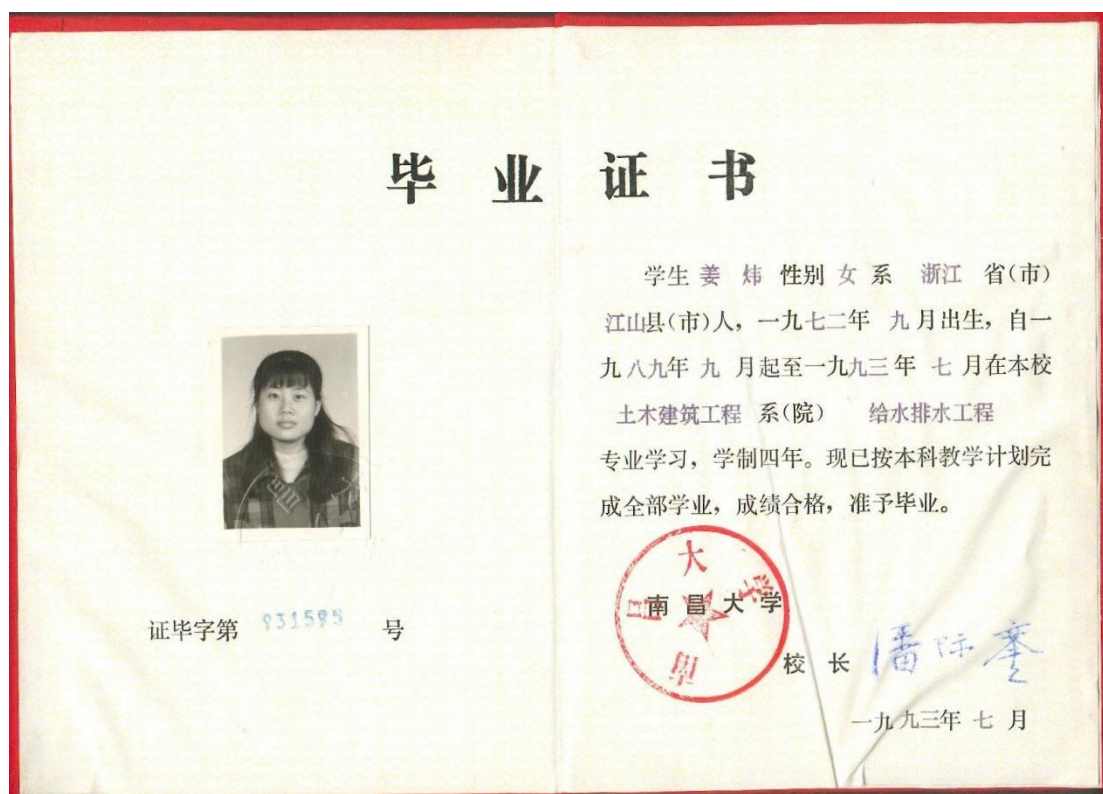 毕业证书
学生 姜 炜 性别 女 系 浙江 省(市)
江山县(市)人，一九七二年 九月出生，自一
九八九年 九 月起至一九九三年 七 月在本校
土木建筑工程 系(院) 给水排水工程
专业学习，学制四年。现已按本科教学计划完
成全部学业，成绩合格，准予毕业。
南昌大学
南昌大学
校 长 潘际銮
一九九三年 七 月
证毕字第 931595 号